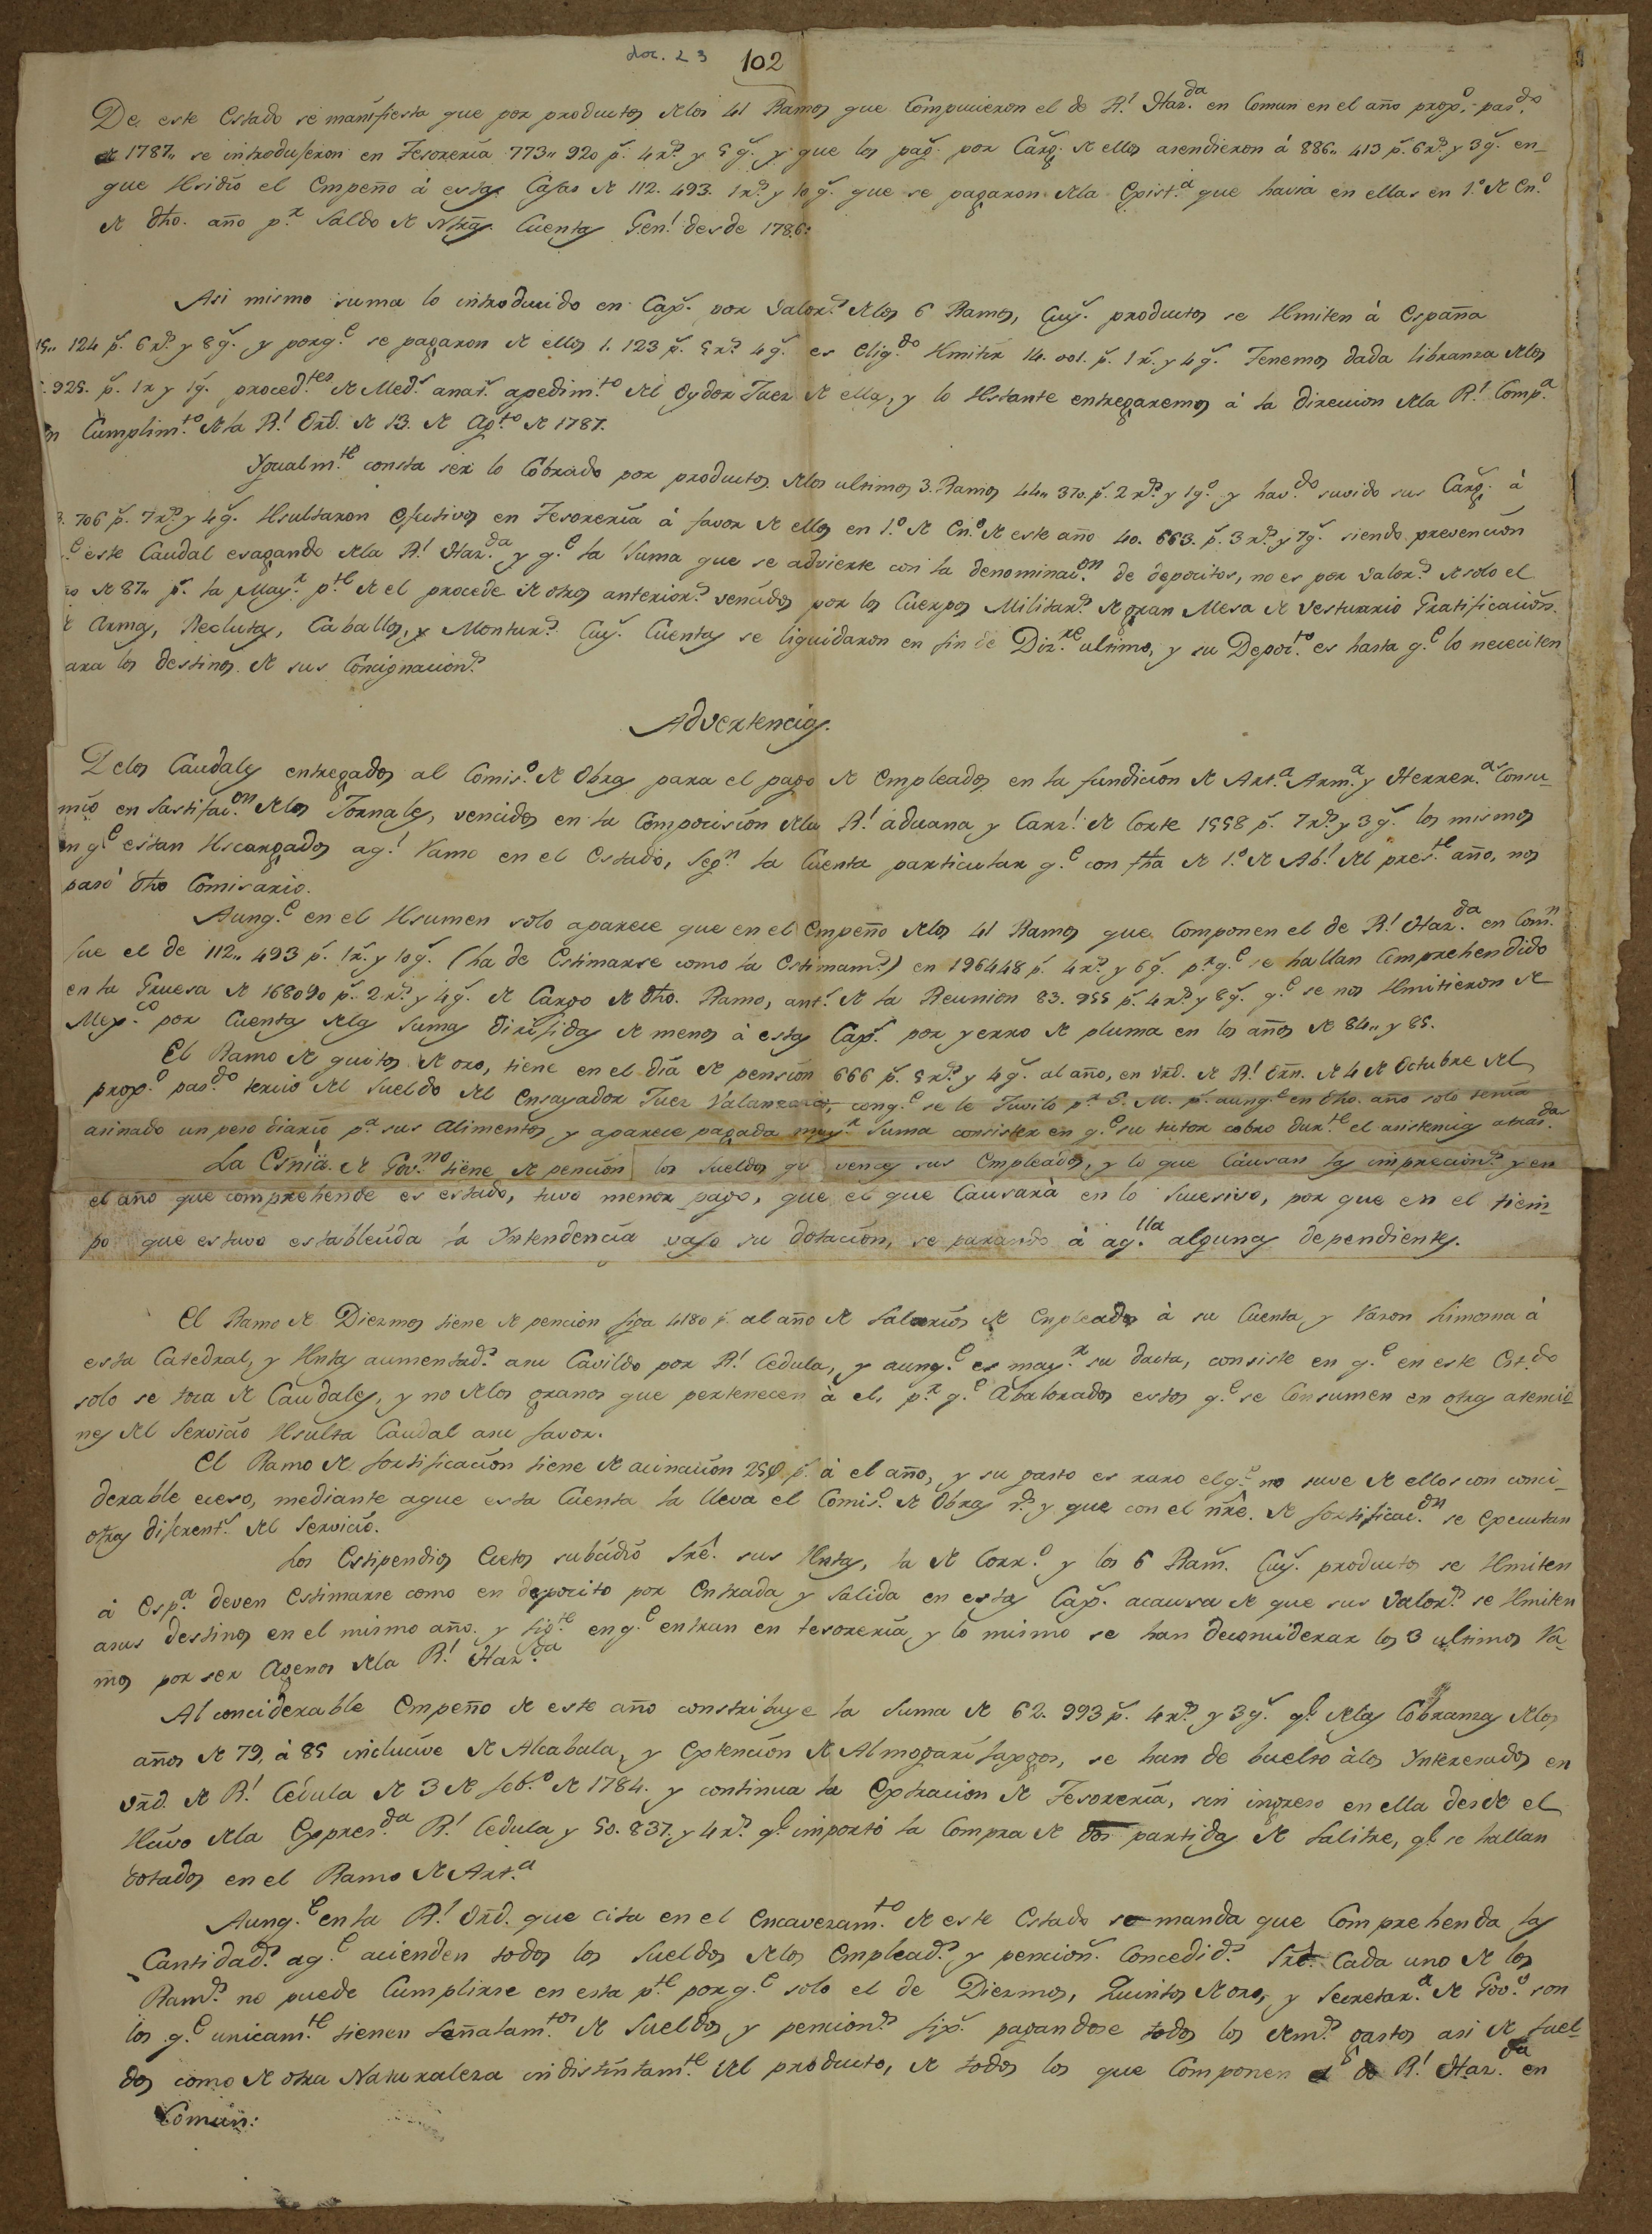 doc. 23 102
De este Estado se manifiesta que por productos de los 41 Ramos que Compucieron el de Rl. Haz.da en Comun en el año prox.o pas.do
de 1787,, se introdujeron en Tesoreria 773,, 920 p.s 4 r.s y 5 g.s y que los pag.s por Carg.s de ellos asendieron à 886,, 413 p.s 6 r.s y 3 g.s en
que residio el Empeño à estas Cajas de 112. 493. 1 r.s y 10 g.s que se pagaron de la Exist.a que havia en ellas en 1.o de En.o
de dho. año p.r Saldo de Ntras. Cuentas Gen.l desde 1786.
Asi mismo suma lo introducido en Cax.s por Valor.s de los 6 Ramos, Cuy.s productos se remiten à España
15,, 124 p.s 6 r.s y 8 g.s y porq.e se pagaron de ellos 1. 123 p.s 5 r.s 4 g.s es elig.do remitir 14. 001. p.s 1 r.s y 4 g.s Tenemos dada libranza de los
.925. p.s 1 r y 1 g.s proced.tes de Med.s anat.s apedim.to del Oydor Juez de ella, y lo restante entregaremos à la direccion de la Rl. Comp.a
n Cumplim.to de la Rl. Ord. de 13. de Ag.to de 1787.
Ygualm.te consta ser lo Cobrado por productos de los ultimos 3. Ramos 44,, 370. p.s 2 r.s y 1 g.o y hav.do suvido sus Carg.s à
3. 706 p.s 7 r.s y 4 g.s resultaron efectivos en Tesoreria à favor de ellos en 1.o de En.o de este año 40. 663. p.s 3 r.s y 7 g.s siendo prevencion
.e este Caudal esageno de la Rl. Haz.da y q.e la Suma que se advierte con la denominac.on de depocitos, no es por valor.s de solo el
ño de 87,, p.s la May.r p.te de el procede de otros anterior.s vencidos por los Cuerpos Militar.s de gran Mesa de Vestuario Gratificacion.
e Armas, Reclutas, Caballos, y Montur.s Cuy.s Cuentas se liquidaron en fin de Diz.re ultimo, y su Depoc.to es hasta q.e lo neceuiten
ara los destinos de sus Concignacion.s
Advertencias.
Delos Caudales entregados al Comis.o de Obras para el pago de Empleados en la fundicion de Art.a Arm.a y Herrer.as Consu-
mio en Sastifac.on de los Jornales, vencidos en la Compocision de la Rl. aduana y Carz.l de Corte 1558 p.s 7 r.s y 3 g.s los mismos
en q.e estan rescargados aq.l Ramo en el Estado, Seg.n la Cuenta particular q.e con fha de 1.o de Ab.l del pres.te año, nos
pasó dho Comisario.
Aunq.e en el resumen solo aparece que en el Empeño de los 41 Ramos que Componen el de Rl. Haz.da en Com.n
fue el de 112,, 493 p.s 1 r.s y 10 g.s (ha de Estimarse como la Estimam.s) en 196448 p.s 4 r.s y 6 g.s p.r q.e se hallan Comprehendido
en la Gruesa de 168090 p.s 2 r.s y 4 g.s de Cargo de dho. Ramo, ant.s de la Reunion 83. 955 p.s 4 r.s y 8 g.s q.e se nos remitieron de
Mex.co por Cuenta de las Sumas dirijidas de menos à estas Cax.s por yerro de pluma en los años de 84,, y 85.
El Ramo de quintos de oro, tiene en el dia de pension 666 p.s 5 r.s y 4 g.s al año, en Ord. de Rl. Orn. de 4 de Octubre del
prox.o pas.do tercio del Sueldo del Ensayador Juez Valanzario, conq.e se le Juvilo p.r S. M. p.s aunq.e en dho. año solo tenia
asinado un peso diario p.a sus Alimentos y aparece pagada may.r Suma consiste en q.e su tutor cobro dur.te el asistencias atras.das
La Esñia. de Gov.no tiene de pencion los Sueldos qe vences sus Empleados, y lo que Causan las imprecion.s y en
el año que comprehende es estado, tuvo menor pago, que el que Causarà en lo Sucesivo, por que en el tiem-
po que estuvo establecida la Yntendencia vajo su dotacion, se pasando à aq.lla algunos dependientes.
El Ramo de Diezmos tiene de pencion fija 4180 p.s al año de Salarios de Enpleados à su Cuenta, y Varon limosna à
esta Catedral, y rentas aumentad.s asu Cavildo por Rl. Cedula, y aunq.e es may.r su dacta, consiste en q.e en este Est.do
solo se toca de Caudales, y no de los granos que pertenecen à el, p.r q.e Abalorados estos q.e se Consumen en otras atencio-
nes del Servicio resulta Caudal asu favor.
El Ramo de fortificacion tiene de acinacion 25 p.s à el año, y su gasto es raro el q.e no suve de ellos con conci-
derable eceso, mediante aque esta Cuenta la lleva el Comis.o de Obras r.s y que con el nre. de fortificac.on se Executan
otras diferent.s del Servicio.
Los Estipendios Ecetos subcidio Sre. sus rentas, la de Corr.o y los 6 Ram.s Cuy.s productos se remiten
à Esp.a deven Estimarse como en depocito por Entrada y Salida en estas Cax.s acausa de que sus Valor.s se remiten
asus destinos en el mismo año. y sig.te en q.e entran en tesoreria, y lo mismo se han deconciderar los 3 ultimos Ra-
mos por ser Agenos de la Rl. Haz.da
Al conciderable Empeño de este año constribuye la Suma de 62. 993 p.s 4 r.s y 3 g.s q.e de las Cobranzas de los
años de 79, à 85 inclucive de Alcabala, y Extencion de Almogarifasgos, se han de buelto àlos Ynteresados en
Ord. de Rl. Cedula de 3 de feb.o de 1784. y continua la Extracion de Tesoreria, sin ingreso en ella desde el
recivo de la Expres.da Rl. Cedula y 50. 837. y 4 r.s q.e importó la Compra de dos partidas de Salitre, q.e se hallan
dotados en el Ramo de Art.a
Aunq.e en la Rl. Ord. que cita en el encavezam.to de este Estado se manda que Comprehenda las
Cantidad.s aq.e acienden todos los Sueldos de los Emplead.s y pencion.s Concedid.s Sre. Cada uno de los
Ram.s no puede Cumplirse en esta p.te porq.e solo el de Diezmos, Quintos de oro, y Secretar.a de Gov.o son
los q.e unicam.te tienen Señalam.tos de Sueldos y pencion.s fix.s pagandose todos los dem.s gastos asi de Suel-
dos como de otra Naturaleza indistintam.te del producto, de todos los que Componen el de Rl. Haz.da en
Comun: